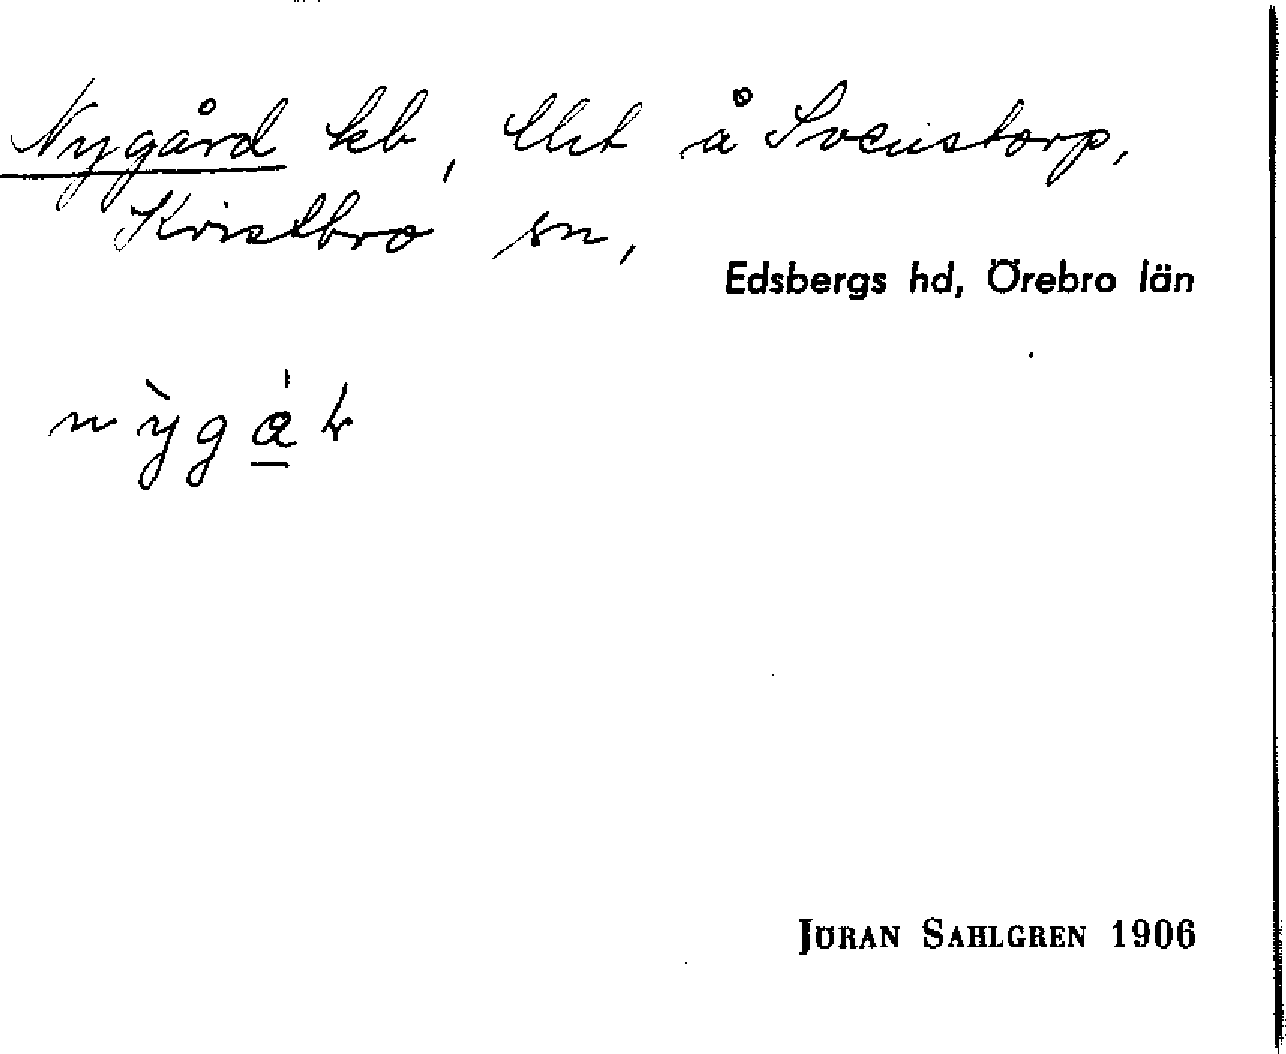 Nygård lb, Uet å Svenstorp,
Kvistbro sn,
Edsbergs hd, Örebro län
nỳgår
JÖRAN SAHLGREN 1906